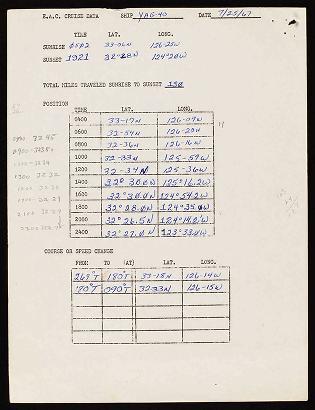 E.A.C. CRUISE DATA SHIP YAG-40 DATE 7/25/67
TIME LAT. LONG.
SUNRISE 0502 33-06N 126-25W
SUNSET 1921 32°28N 124°20W
TOTAL MILES TRAVELED SUNRISE TO SUNSET 130
POSITION
TIME LAT. LONG.
0400 33-17N 126-09W
0600 32-54N 126-20W
0800 32-36N 126-16W
1000 32-33N 125-57W
1200 32-34N 125-36W
1400 32°30.0N 125°16.2W
1600 32°30.0N 124°54.2W
1800 32°28.0N 124°35.0W
2000 32°26.5N 124°14.0W
2400 32°27.0N 123°33.0W
COURSE OR SPEED CHANGE
FROM TO (AT) LAT. LONG.
267°T 180°T 33-18N 126-14W
190°T 090°T 32-33N 126-15W